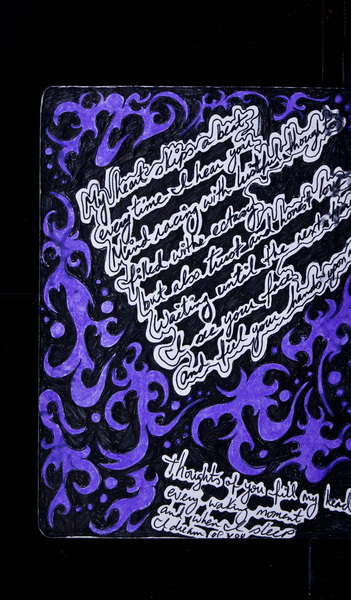 My heart skips a beat
everytime I hear your
Mind racing with blissful thoughts
filled with ecstasy
but also trust and honest
Waiting until the next
I see your face
And feel your hands
Thoughts of you fill my head
every waking moment
and when I sleep
I dream of you